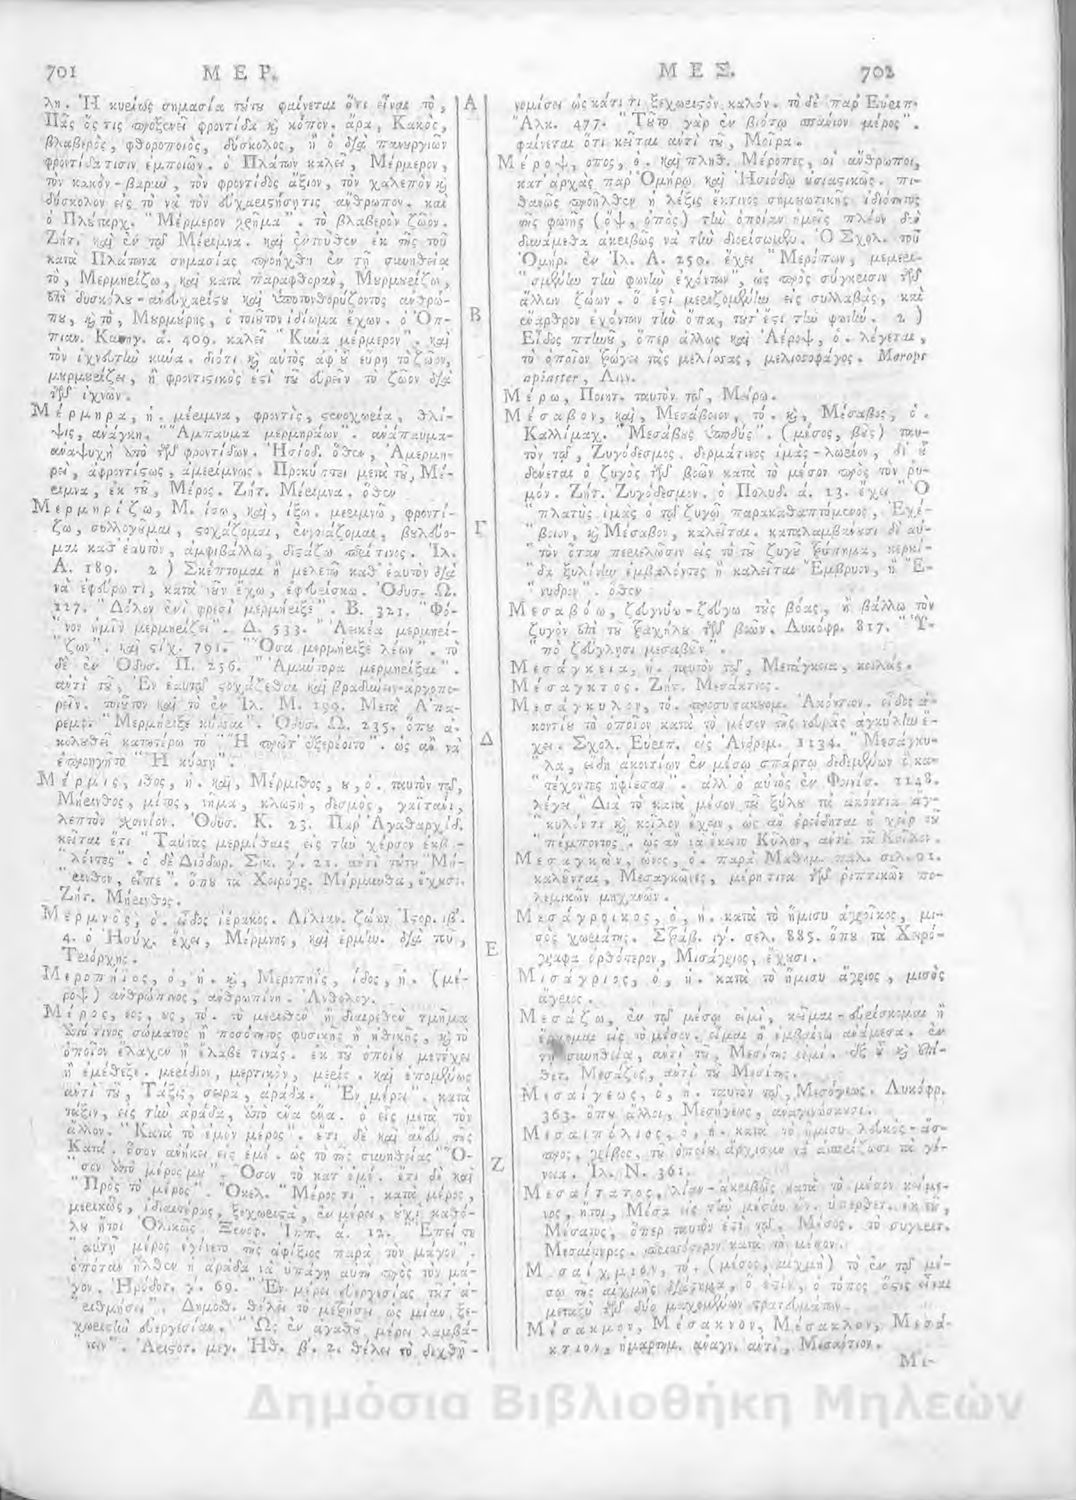 701 ΜΕΡ.
λη. Ἡ κυρίως σημασία τούτου φαίνεται ὅτι εἶναι τὸ,
Πᾶς ὅς τις προξενεῖ φροντίδα καὶ κόπον. ἄρα, Κακὸς,
βλαβερὸς, φθοροποιὸς, δύσκολος, ἢ ὁ διὰ πανουργιῶν
φροντίδα τισὶν ἐμποιῶν. ὁ Πλάτων καλεῖ, Μέρμερον,
τὸν κακὸν-βαρὺν, τὸν φροντίδος ἄξιον, τὸν χαλεπὸν καὶ
δύσκολον εἰς τὸ νὰ τὸν εὐχαριστήσῃ τις ἄνθρωπον. καὶ
ὁ Πλούταρχ. "Μέρμερον χρῆμα". τὸ βλαβερὸν ζῶον.
Ζήτ. καὶ ἐν τῷ Μέριμνα. καὶ ἐντεῦθεν ἐκ τῆς τοῦ
κατὰ Πλάτωνα σημασίας προήχθη ἐν τῇ συνηθείᾳ
τὸ, Μερμηρίζω, καὶ κατὰ παραφθορὰν, Μουρμουρίζω,
ἐπὶ δυσκόλου-δυσχαρίστου καὶ ὑποτονθορύζοντος ἀνθρώ-
που, καὶ τὸ, Μουρμούρης, ὁ τοιοῦτον ἰδίωμα ἔχων. ὁ Ὀπ-
πιαν. Κυνηγ. α. 409. καλεῖ "Κύνα μέρμερον". καὶ
τὸν ἰχνευτὴν κύνα. διότι καὶ αὐτὸς ἀφ' οὗ εὕρῃ τὸ ζῶον,
μουρμουρίζει, ἢ φροντιστικὸς ἐστὶ τοῦ εὑρεῖν τὸ ζῶον διὰ
τῶν ἰχνῶν.
Μέρμηρα, ἡ. μέριμνα, φροντὶς, στενοχωρία, θλί-
ψις, ἀνάγκη. "Ἄμπαυμα μερμηράων". ἀνάπαυμα-
ἀναψυχὴ ἀπὸ τῶν φροντίδων. Ἡσίοδ. ὅθεν, Ἀμερμη-
ρεὶ, ἀφροντίστως, ἀμερίμνως. Προκύπτει μετὰ τοῦ, Μέ-
ριμνα, ἐκ τοῦ, Μέρος. Ζήτ. Μέριμνα. ὅθεν
Μερμηρίζω, Μ. ίσω, καὶ, ίξω. μεριμνῶ, φροντί-
ζω, συλλογοῦμαι, στοχάζομαι, ἐννοιάζομαι, βουλεύο-
μαι καθ' ἑαυτὸν, ἀμφιβάλλω, διστάζω περί τινος. Ἰλ.
Α. 189. 2) Σκέπτομαι ἢ μελετῶ καθ' ἑαυτὸν διὰ
νὰ ἐφεύρω τι, κατὰ νοῦν ἔχω, ἐφευρίσκω. Ὀδυσ. Ω.
127. "Δόλον ἐνὶ φρεσὶ μερμήριξε". Β. 321. "Φό-
"νον ἡμῖν μερμηρίζει". Δ. 533. "Ἀεικέα μερμηρί-
"ζων". καὶ στίχ. 791. "Ὅσα μερμήριξε λέων". τὸ
δὲ ἐν Ὀδυσ. Π. 256. "Ἀμύντορα μερμηρίξαι".
ἀντὶ τοῦ, Ἐν ἑαυτῷ στοχάζεσθαι καὶ βραδύνειν-ἀργοπο-
ρεῖν. τοιοῦτον καὶ τὸ ἐν Ἰλ. Μ. 199. Μετὰ Ἀπα-
ρεμφ. "Μερμήριξε κύσσαι". Ὀδυσ. Ω. 235. ὅπου ἀ-
κολουθεῖ κατωτέρω τὸ "Ἢ πρῶτ' ἐξερέοιτο". ὡς ἂν νὰ
ἐπροηγῆτο "Ἢ κύσῃ".
Μέρμις, ιθος, ἡ. καὶ, Μέρμιθος, ου, ὁ. ταυτὸν τῷ,
Μήρινθος, μίτος, νῆμα, κλωστὴ, δεσμὸς, γαϊτάνι,
λεπτὸν σχοινίον. Ὀδυσ. Κ. 23. Παρ' Ἀγαθαρχίδ.
κεῖται ἔτι "Ταύτας μερμίθαις εἰς τὴν χέρσον ἐκβ-
"λέντες". ὁ δὲ Διόδωρ. Σικ. γ'. 21. ἀντὶ τούτου "Μή-
"ρινθον, εἶπε". ὅπου τὰ Χειρόγρ. Μέρμινθα, ἔχουσι.
Ζήτ. Μήρινθος.
Μέρμνος, ὁ. εἶδος ἱέρακος. Αἰλιαν. ζώων Ἱστορ. ιβ'.
4. ὁ Ἡσύχ. ἔχει, Μέρμνης, καὶ ἑρμην. διὰ τοῦ,
Τριόρχης.
Μεροπήϊος, ὁ, ἡ. καὶ, Μεροπηῒς, ίδος, ἡ. (μέ-
ροψ) ἀνθρώπινος, ἀνθρωπίνη. Ἀνθολογ.
Μέρος, εος, ους, τὸ. τὸ μερισθὲν ἢ διαιρεθὲν τμῆμα
ἀπό τινος σώματος ἢ ποσότητος φυσικῆς ἢ ἠθικῆς, καὶ τὸ
ὁποῖον ἔλαχεν ἢ ἔλαβέ τινας. ἐκ τοῦ ὁποίου μετέχει
ἢ ἐμέθεξε. μερίδιον, μερτικὸν, μερίς. καὶ ἑπομένως
ἀντὶ τοῦ, Τάξις, σειρὰ, ἀράδα. "Ἐν μέρει". κατὰ
τάξιν, εἰς τὴν ἀράδα, ἀπὸ ἕνα ἕνα. ὁ εἷς μετὰ τὸν
ἄλλον. "Κατὰ τὸ ἐμὸν μέρος". ἔτι δὲ καὶ ἄνευ τῆς
Κατά. ὅσον ἀνήκει εἰς ἐμέ. ὡς τὸ τῆς συνηθείας "Ὅ-
"σον ἀπὸ μέρος μου". Ὅσον τὸ κατ' ἐμέ. ἔτι δὲ καὶ
"Πρὸς τὸ μέρος". Θουκ. "Μέρος τι". κατὰ μέρος,
μερικῶς, ἰδιαιτέρως, ξεχωριστὰ, ἐν μέρει, οὐχὶ καθό-
λου ἤτοι Ὁλικῶς. Ξενοφ. Ἱππ. α. 12. "Ἐπεί τε
"αὐτῇ μέρος ἐγίνετο τῆς ἀφίξιος παρὰ τὸν μάγον".
ὁπόταν ἦλθεν ἡ ἀράδα νὰ ὑπάγῃ αὐτὴ πρὸς τὸν μά-
γον. Ἡρόδοτ. γ'. 69. "Ἐν μέρει εὐεργεσίας τοῦτ' ἀ-
"ριθμήσει". Δημοσθ. θέλει τὸ μετρήσει ὡς μίαν ξε-
χωριστὴν εὐεργεσίαν. "Ὡς ἐν ἀγαθοῦ μέρει λαμβά-
νειν". Ἀριστοτ. μεγ. Ἠθ. β'. 2. θέλει τὸ δεχθῆ-
Α
Β
Γ
Δ
Ε
Ζ
ΜΕΣ. 702
νομίσει ὡς κάτι τι ξεχωριστὸν καλόν. τὸ δὲ παρ' Εὐριπ.
"Ἀλκ. 477. "Τοῦτο γὰρ ἐν βιότῳ σπάνιον μέρος".
φαίνεται ὅτι κεῖται ἀντὶ τοῦ, Μοῖρα.
Μέροψ, οπος, ὁ. καὶ πληθ. Μέροπες, οἱ ἄνθρωποι,
κατ' ἀρχὰς παρ' Ὁμήρῳ καὶ Ἡσιόδῳ οὐσιαστικῶς. πι-
θανῶς προῆλθεν ἡ λέξις ἔκ τινος σημαντικῆς ἰδιότητος
τῆς φωνῆς (ὂψ, ὀπὸς) τὴν ὁποίαν ἡμεῖς πλέον δὲν
δυνάμεθα ἀκριβῶς νὰ τὴν διορίσωμεν. Ὁ Σχολ. τοῦ
Ὁμηρ. ἐν Ἰλ. Α. 250. ἔχει "Μερόπων, μεμερι-
"σμένην τὴν φωνὴν ἐχόντων", ὡς πρὸς σύγκρισιν τῶν
ἄλλων ζώων. ὅ ἐστι μεριζομένην εἰς συλλαβὰς, καὶ
ἔναρθρον ἐχόντων τὴν ὄπα, τουτέστι τὴν φωνήν. 2)
Εἶδος πτηνοῦ, ὅπερ ἄλλως καὶ Ἀέροψ, ὁ. λέγεται,
τὸ ὁποῖον τρώγει τὰς μελίσσας, μελισσοφάγος. Merops
apiaster, Λιν.
Μέρω, Ποιητ. ταυτὸν τῷ, Μείρω.
Μέσαβον, καὶ, Μεσάβοιον, τό. καὶ, Μέσαβος, ὁ.
Καλλίμαχ. "Μεσάβους ὑποδύς". (μέσος, βοῦς) ταυ-
τὸν τῷ, Ζυγόδεσμος. δερμάτινος ἱμὰς-λωρίον, δι' οὗ
δένεται ὁ ζυγὸς τῶν βοῶν κατὰ τὸ μέσον πρὸς τὸν ῥυ-
μόν. Ζήτ. Ζυγόδεσμον. ὁ Πολυδ. α. 13. ἔχει "Ὁ
"πλατὺς ἱμὰς ὁ τῷ ζυγῷ παρακαθαπτόμενος, Ἐχέ-
"βοιον, καὶ Μέσαβον, καλεῖται. καταλαμβάνουσι δὲ αὐ-
"τὸν ὅταν περιελῶσιν εἰς τὸ τοῦ ζυγοῦ τρύπημα, κερκί-
"δα ξυλίνην ἐμβαλόντες ἢ καλεῖται Ἔμβρυον, ἢ Ἔ-
"νυδρον". ὅθεν
Μεσαβόω, ζευγνύω-ζεύγω τοὺς βόας, ἢ βάλλω τὸν
ζυγὸν ἐπὶ τοῦ τραχήλου τῶν βοῶν. Λυκόφρ. 817. "Ὑ-
"πὸ ζεύγλῃσι μεσαβῶν".
Μεσάγκεια, ἡ. ταυτὸν τῷ, Μετάγκεια, κοιλάς.
Μέσαγκτος. Ζήτ. Μεσάκτιος.
Μεσάγκυλον, τὸ. προσυπακουομ. Ἀκόντιον. εἶδος ἀ-
κοντίου τὸ ὁποῖον κατὰ τὸ μέσον τῆς νευρᾶς ἀγκύλην ἔ-
χει. Σχολ. Εὐριπ. εἰς Ἀνδρομ. 1134. "Μεσάγκυ-
"λα, εἴδη ἀκοντίων ἐν μέσῳ σπάρτῳ δεδεμένων ὃ κα-
"τέχοντες ἠφίεσαν". ἀλλ' ὁ αὐτὸς ἐν Φοινίσ. 1148.
λέγει "Διὰ τὸ κατὰ μέσον τοῦ ξύλου τὰ ἀκόντια ἀγ-
"κύλον τι καὶ κοῖλον ἔχειν, ὡς ἂν ἐρείδηται ἡ χεὶρ τοῦ
"πέμποντος". ὡς ἂν νὰ ἔκειτο Κῦλον, ἀντὶ τοῦ Κοῖλον.
Μεσαγκὼν, ῶνος, ὁ. παρὰ Μαθημ. παλ. σελ. 91.
καλοῦνται, Μεσαγκῶνες, μέρη τινα τῶν ῥιπτικῶν πο-
λεμικῶν μηχανῶν.
Μεσάγροικος, ὁ, ἡ. κατὰ τὸ ἥμισυ ἀγροῖκος, μι-
σὸς χωριάτης. Στράβ. ιγ'. σελ. 885. ὅπου τὰ Χειρό-
γραφα ὀρθότερον, Μισάγριος, ἔχουσι.
Μεσάγριος, ὁ, ἡ. κατὰ τὸ ἥμισυ ἄγριος, μισὸς
ἄγριος.
Μεσάζω, ἐν τῷ μέσῳ εἰμὶ, κεῖμαι-εὑρίσκομαι ἢ
ἔρχομαι εἰς τὸ μέσον. εἶμαι ἢ ἐμβαίνω ἀνάμεσα. ἐν
τῇ συνηθείᾳ, ἀντὶ τοῦ, Μεσίτης εἰμί. ἐξ οὗ καὶ ἐπί-
θετ. Μεσάζις, ἀντὶ τοῦ Μεσίτης.
Μεσαίγεως, ὁ, ἡ. ταυτὸν τῷ, Μεσόγεως. Λυκόφρ.
363. ὅπου ἄλλοι, Μεσήγεως, ἀναγινώσκουσι.
Μεσαιπόλιος, ὁ, ἡ. κατὰ τὸ ἥμισυ λευκὸς-ἄσ-
προς, γρίβος, τοῦ ὁποίου ἀρχίζουν νὰ ἀσπρίζωσι τὰ γέ-
νεια. Ἰλ. Ν. 361.
Μεσαίτατος, λίαν-ἀκριβῶς κατὰ τὸ μέσον κείμε-
νος, ἤτοι, Μέσα εἰς τὴν μέσην ὤν. ὑπερθετ. ἐκ τοῦ,
Μέσαιος, ὅπερ ταυτόν ἐστι τῷ, Μέσος. τὸ συγκριτ.
Μεσαίτερος. περισσότερον κατὰ τὸ μέσον.
Μεσαίχμιον, τὸ. (μέσος, αἰχμὴ) τὸ ἐν τῷ μέ-
σῳ τῆς αἰχμῆς διάστημα, ὅ ἐστιν, ὁ τόπος ὅστις εἶναι
μεταξὺ τῶν δύο μαχομένων στρατευμάτων.
Μέσακμον, Μέσακνον, Μέσακλον, Μεσά-
κτιον, ἡμαρτημ. ἀναγν. ἀντὶ, Μεσάντιον.
Με-
Δημόσια Βιβλιοθήκη Μηλεών